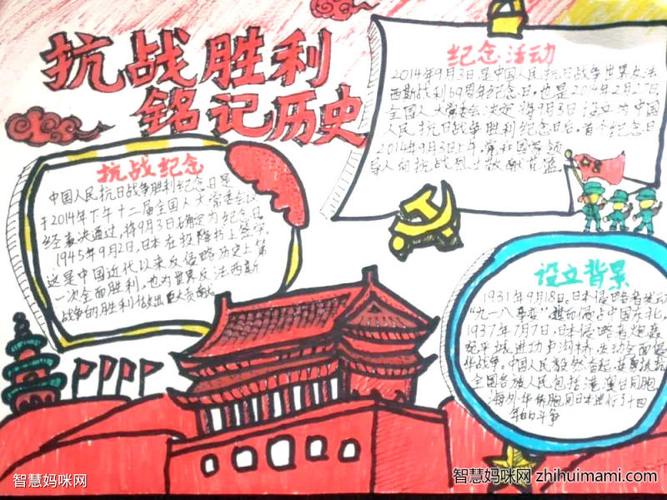 抗战胜利
铭记历史
纪念活动
2014年9月3日是中国人民抗日战争世界反法
西斯战利69周年纪念日,也是2014年2月27日
全国人大常委会决定将9月3日设立为中国
人民抗日战争胜利纪念日后,首个纪念日
2014年9月3日上午,党和国家
抗战纪念
中国人民抗日战争胜利纪念日是
于2014年下午十二届全国人大常委会
经表决通过,将9月3日确定为纪念日
1945年9月2日,日本在投降书上签字
这是中国近代以来反侵略历史上第
一次全面胜利,也为世界反法西斯
战争的胜利做出巨大贡献
设立背景
1931年9月18日,日本侵略者发动
"九一八事变" 中国东北。
1937年7月7日,日本侵略者炮轰
宛平城进攻卢沟桥,发动全面侵
华战争。中国人民毅然奋起,
全国各族人民包括港澳台同胞
海外华侨胞同日本进行了十四
年的斗争
智慧妈咪网
智慧妈咪网 zhihuimami.com